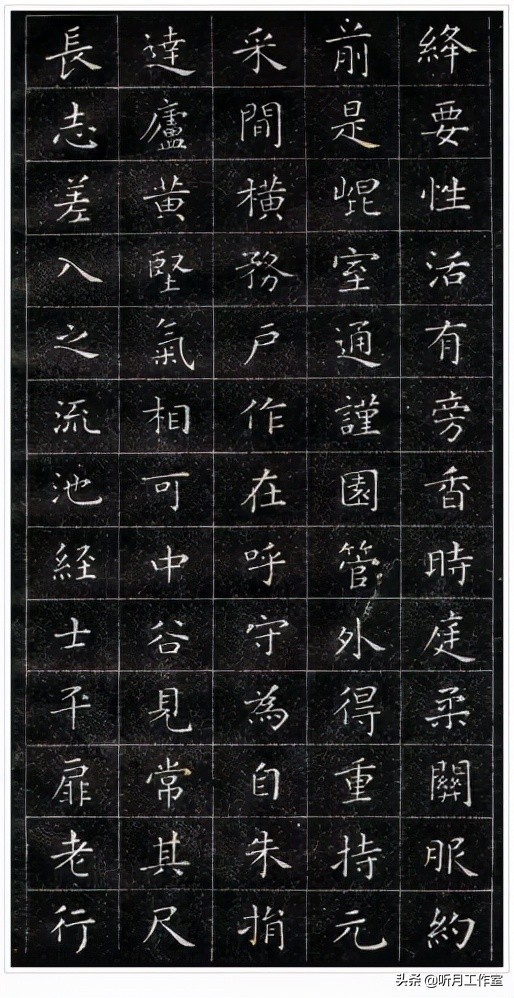 絳要性活有旁香時庭柔關服約
前是崐室通謹園管外得重持元
采間横務戶作在呼守為自朱捐
達廬黄堅氣相可中谷見常其尺
長志差入之流池経士平扉老行
头条 @听月工作室